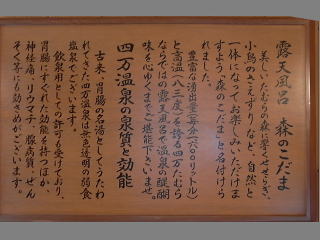 露天風呂 森のこだま
美しいたむらの森に響くせせらぎ、
小鳥のさえずりなど、自然と
一体になってお楽しみいただけま
すよう、森のこだまと名付けら
れました。
豊富な湧出量(毎分一六〇〇リットル)
と高温(八三度)を誇る四万たむら
ならではの露天風呂で温泉の醍醐
味を心ゆくまでご堪能下さいませ。
四万温泉の泉質と効能
古来、胃腸の名湯としてうたわ
れてきた四万温泉は無色透明の弱食
塩泉でございます。
飲泉用としての許可も受けており、
胃腸にすぐれた効能を持つほか、
神経痛、リウマチ、腺病質、ぜん
そく等にも効きめがございます。